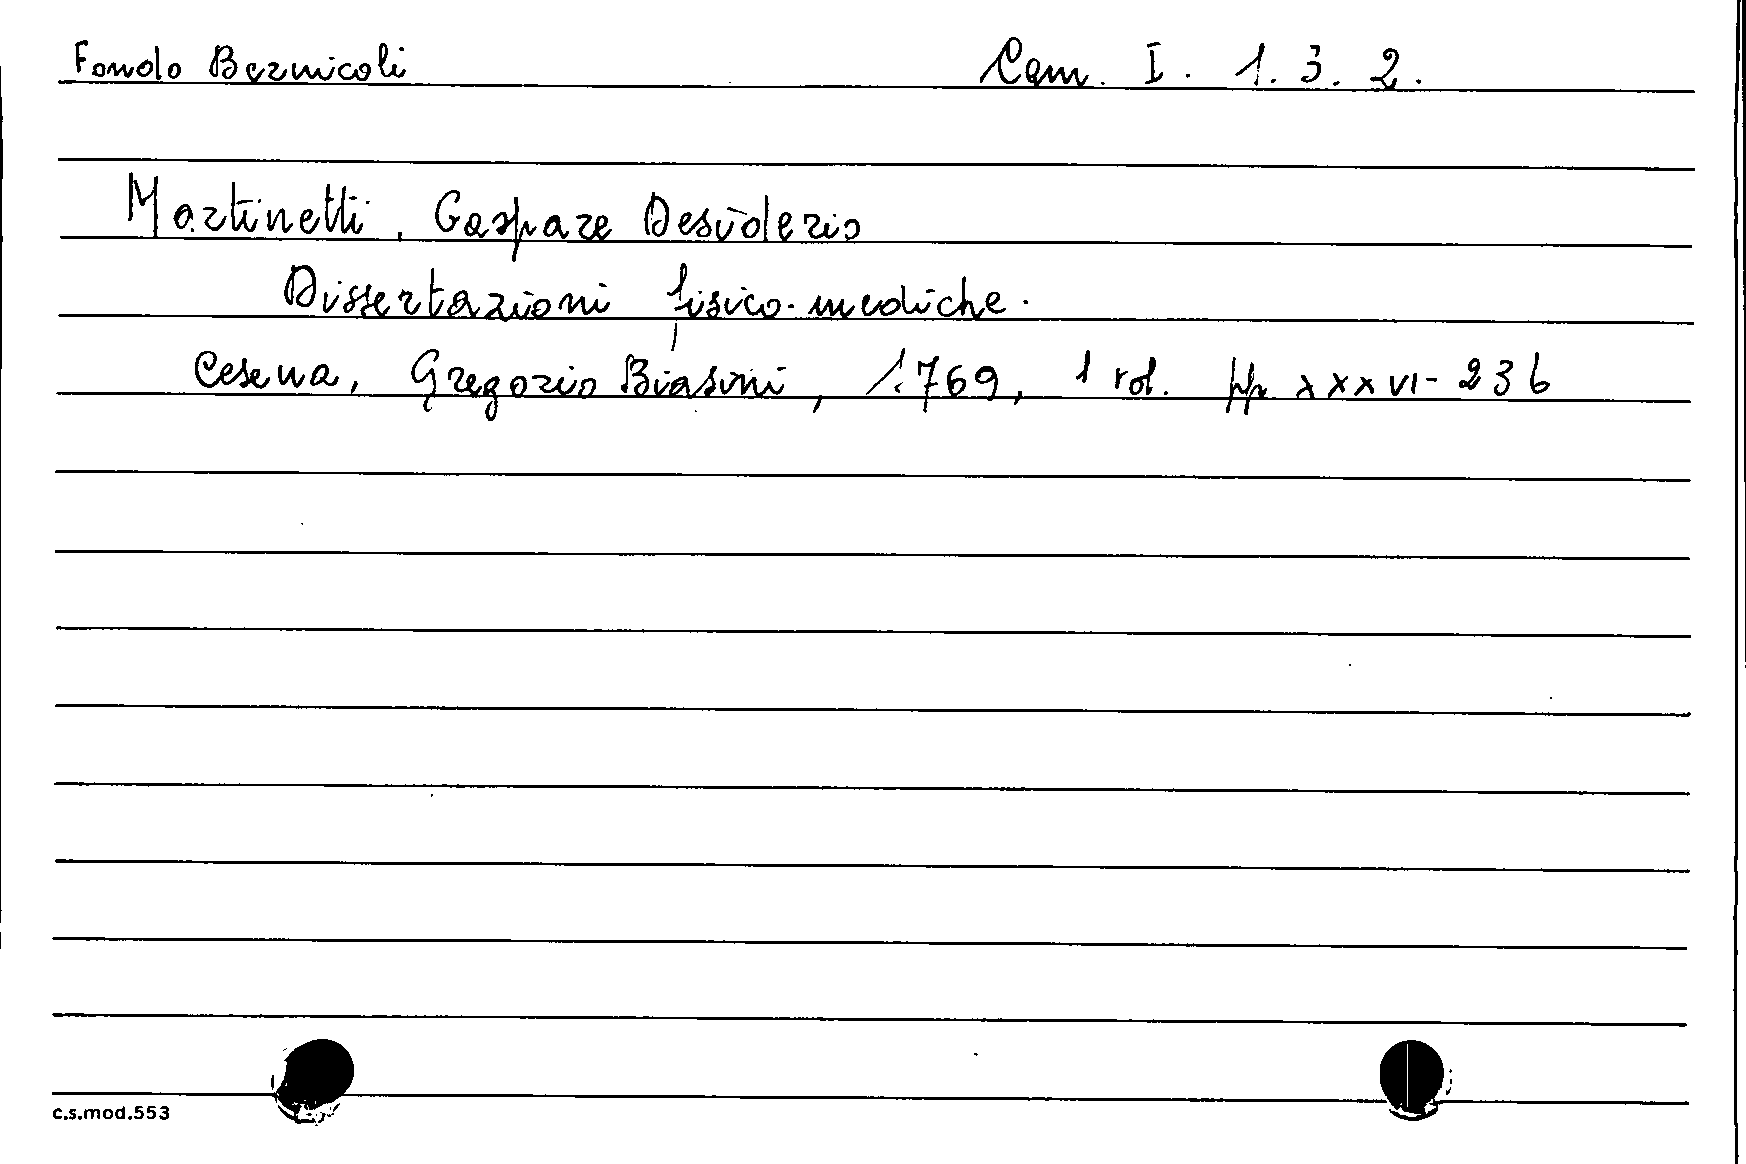 Fondo Bernicoli Cam. I. 1. 3. 2.
Martinetti, Gaspare Desiderio
Dissertazioni fisico-mediche.
Cesena, Gregorio Biasini, 1769, 1 vol. pp XXXVI-236
c.s.mod.553